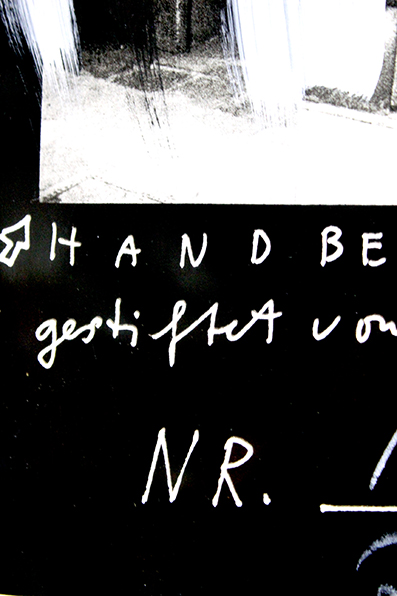 HANDBE
gestiftet von
NR.